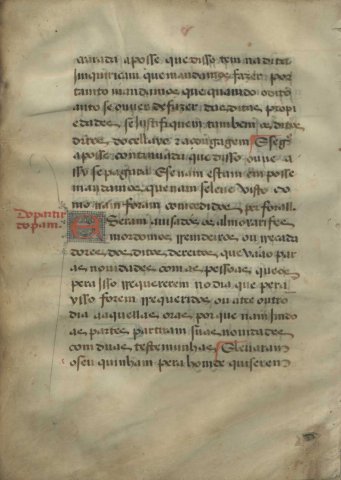 rarada a posse que disso tem na dita
Inquiricam que mandamos fazer por
tanto mandamos que quando o dito
anto se ouver de fazer das ditas propi
edades se justifiquem tambem os ditos
ditos do celleiro raçonagem E seg
a posse continuada que disso ouue a
ssy se pagara E se nam estam em posse
mandamos que nam se leue visto co
mo nam foram concedidos per forall
Do partir
do pam
E seram auisados os almoxarifes
mordomos Remdeiros ou Recada
dores dos ditos dereitos que vaão par
as nouidades com as pessoas que os
pera isso Requererem no dia que pera
visso forem Requeridos ou ate outro
dia aaquellas oras por que nam hindo
as partes partiram suas nouidades
com duas testemunhas E leuaram
o seu quinham pera homde quiserem